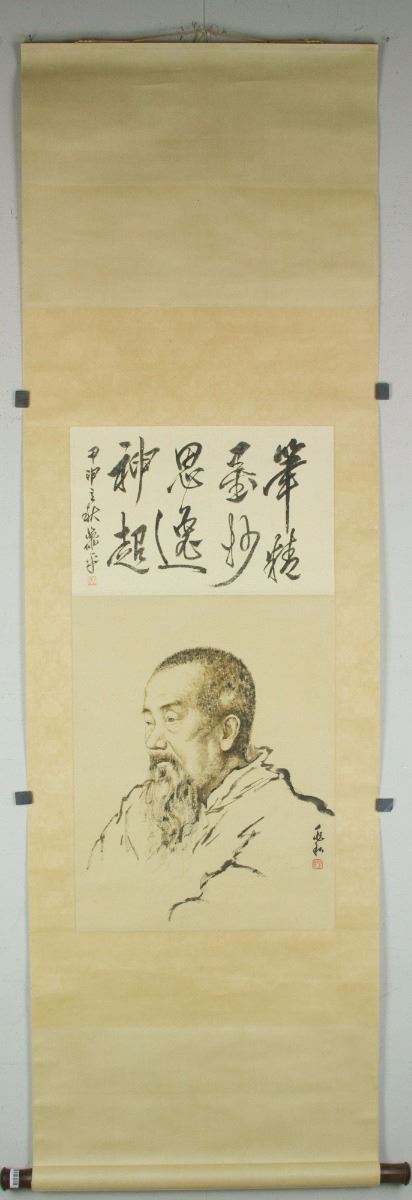 筆精
墨妙
思逸
神超
甲申之秋